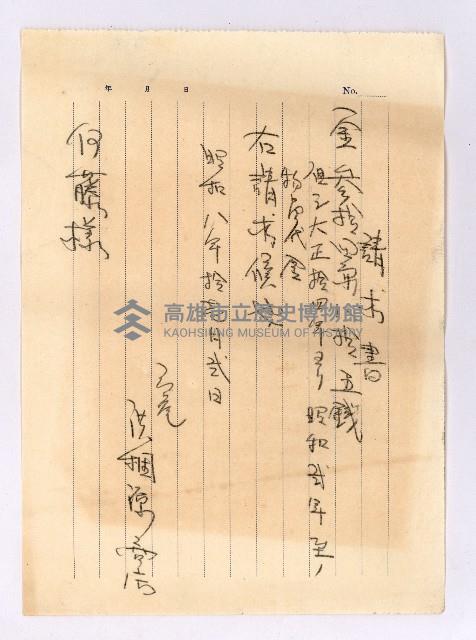 年 月 日 No.
請求書
一金参拾四円拾五銭
但シ大正拾四年ヨリ昭和弐年迄ノ
物品代金
右請求候也
昭和八年拾弐月弐日
洪掴源商店
何藤様
高雄市立歷史博物館
KAOHSIUNG MUSEUM OF HISTORY